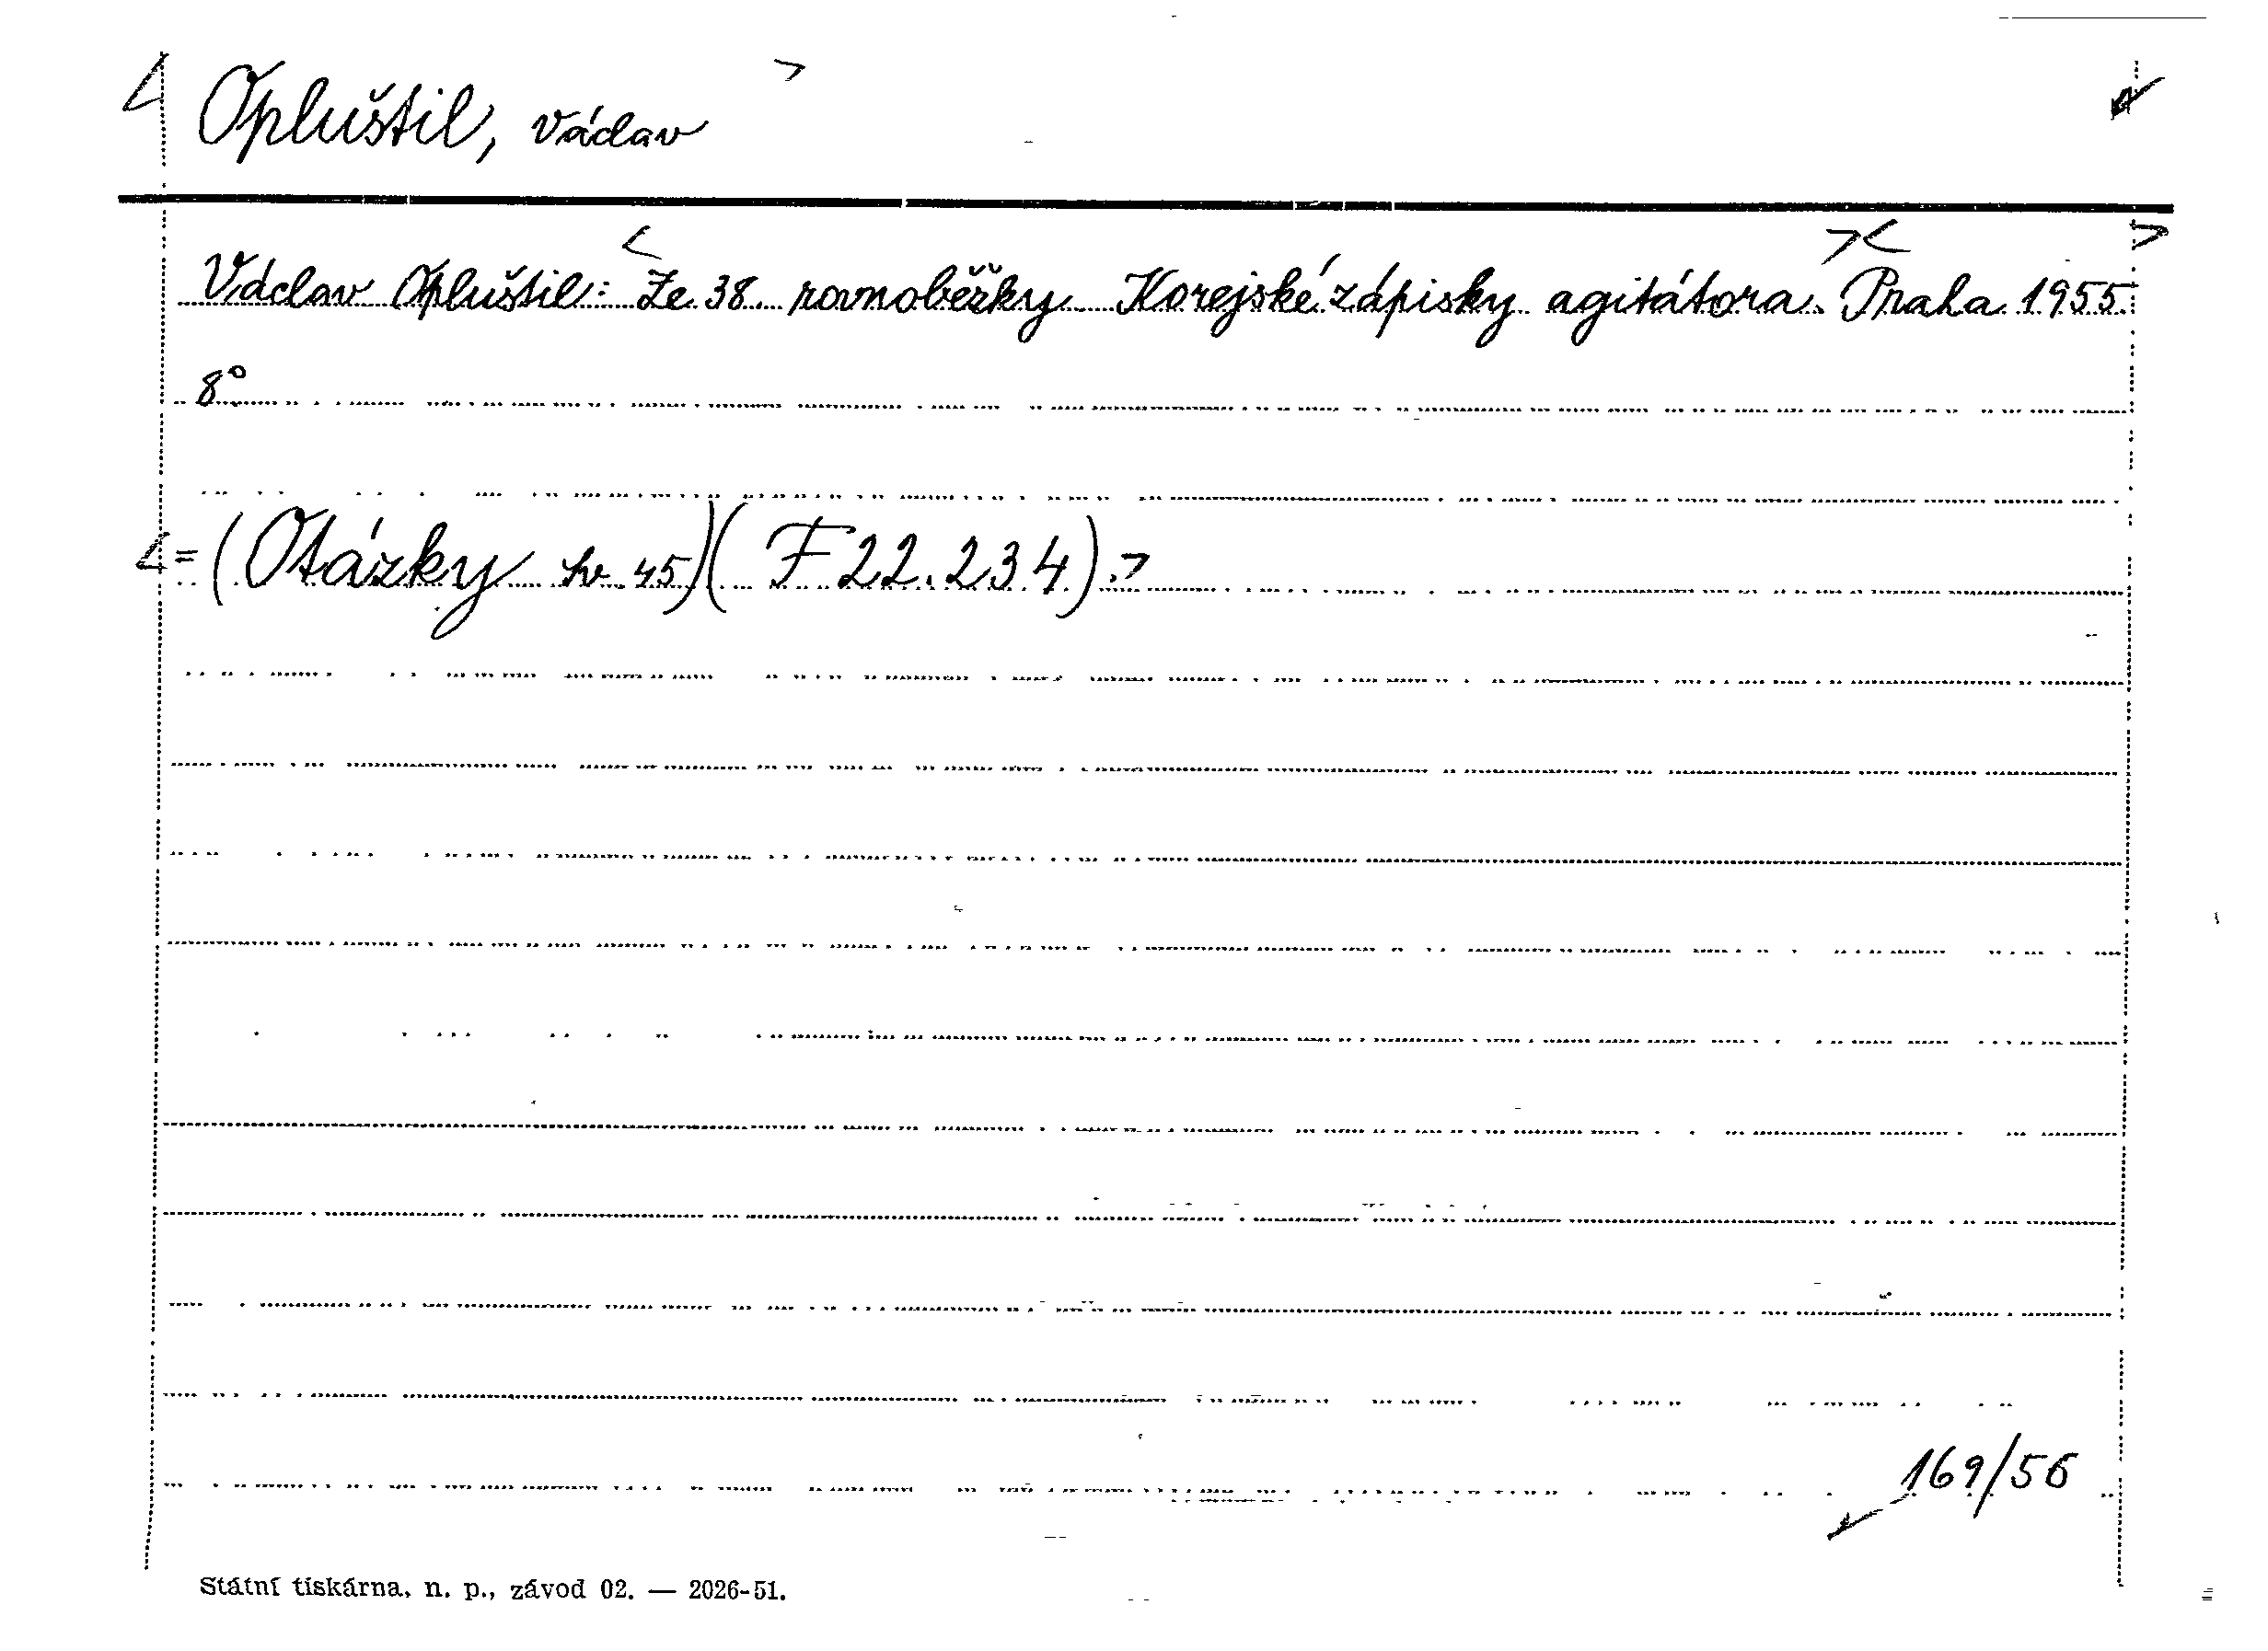 Opluštil, Václav
Václav Opluštil: Ze 38. rovnoběžky. Korejské zápisky agitátora. Praha 1955.
8°.
= (Otázky sv. 45) (F 22.234).
169/56
Státní tiskárna, n. p., závod 02. — 2026-51.